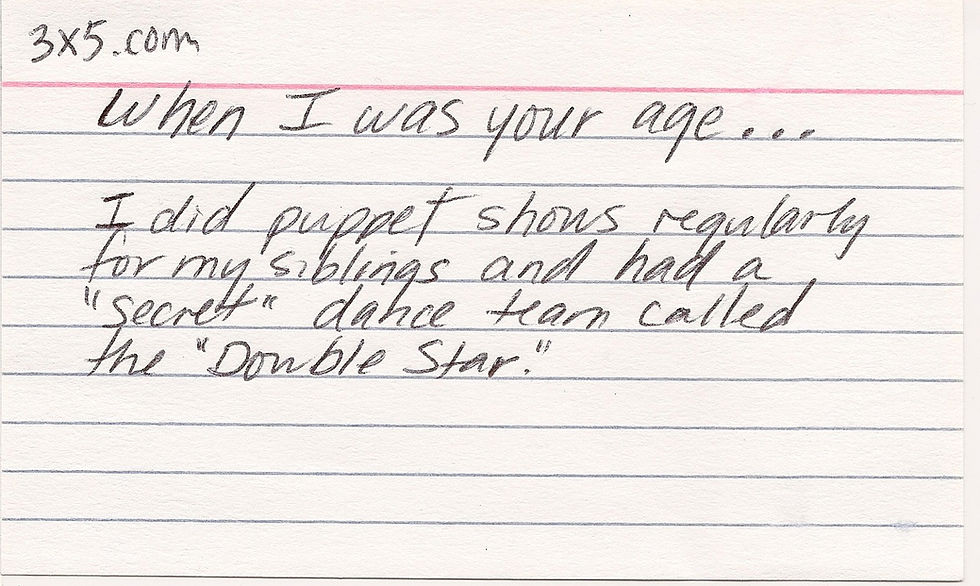 3x5.com
When I was your age...
I did puppet shows regularly
for my siblings and had a
"secret" dance team called
the "Double Star."